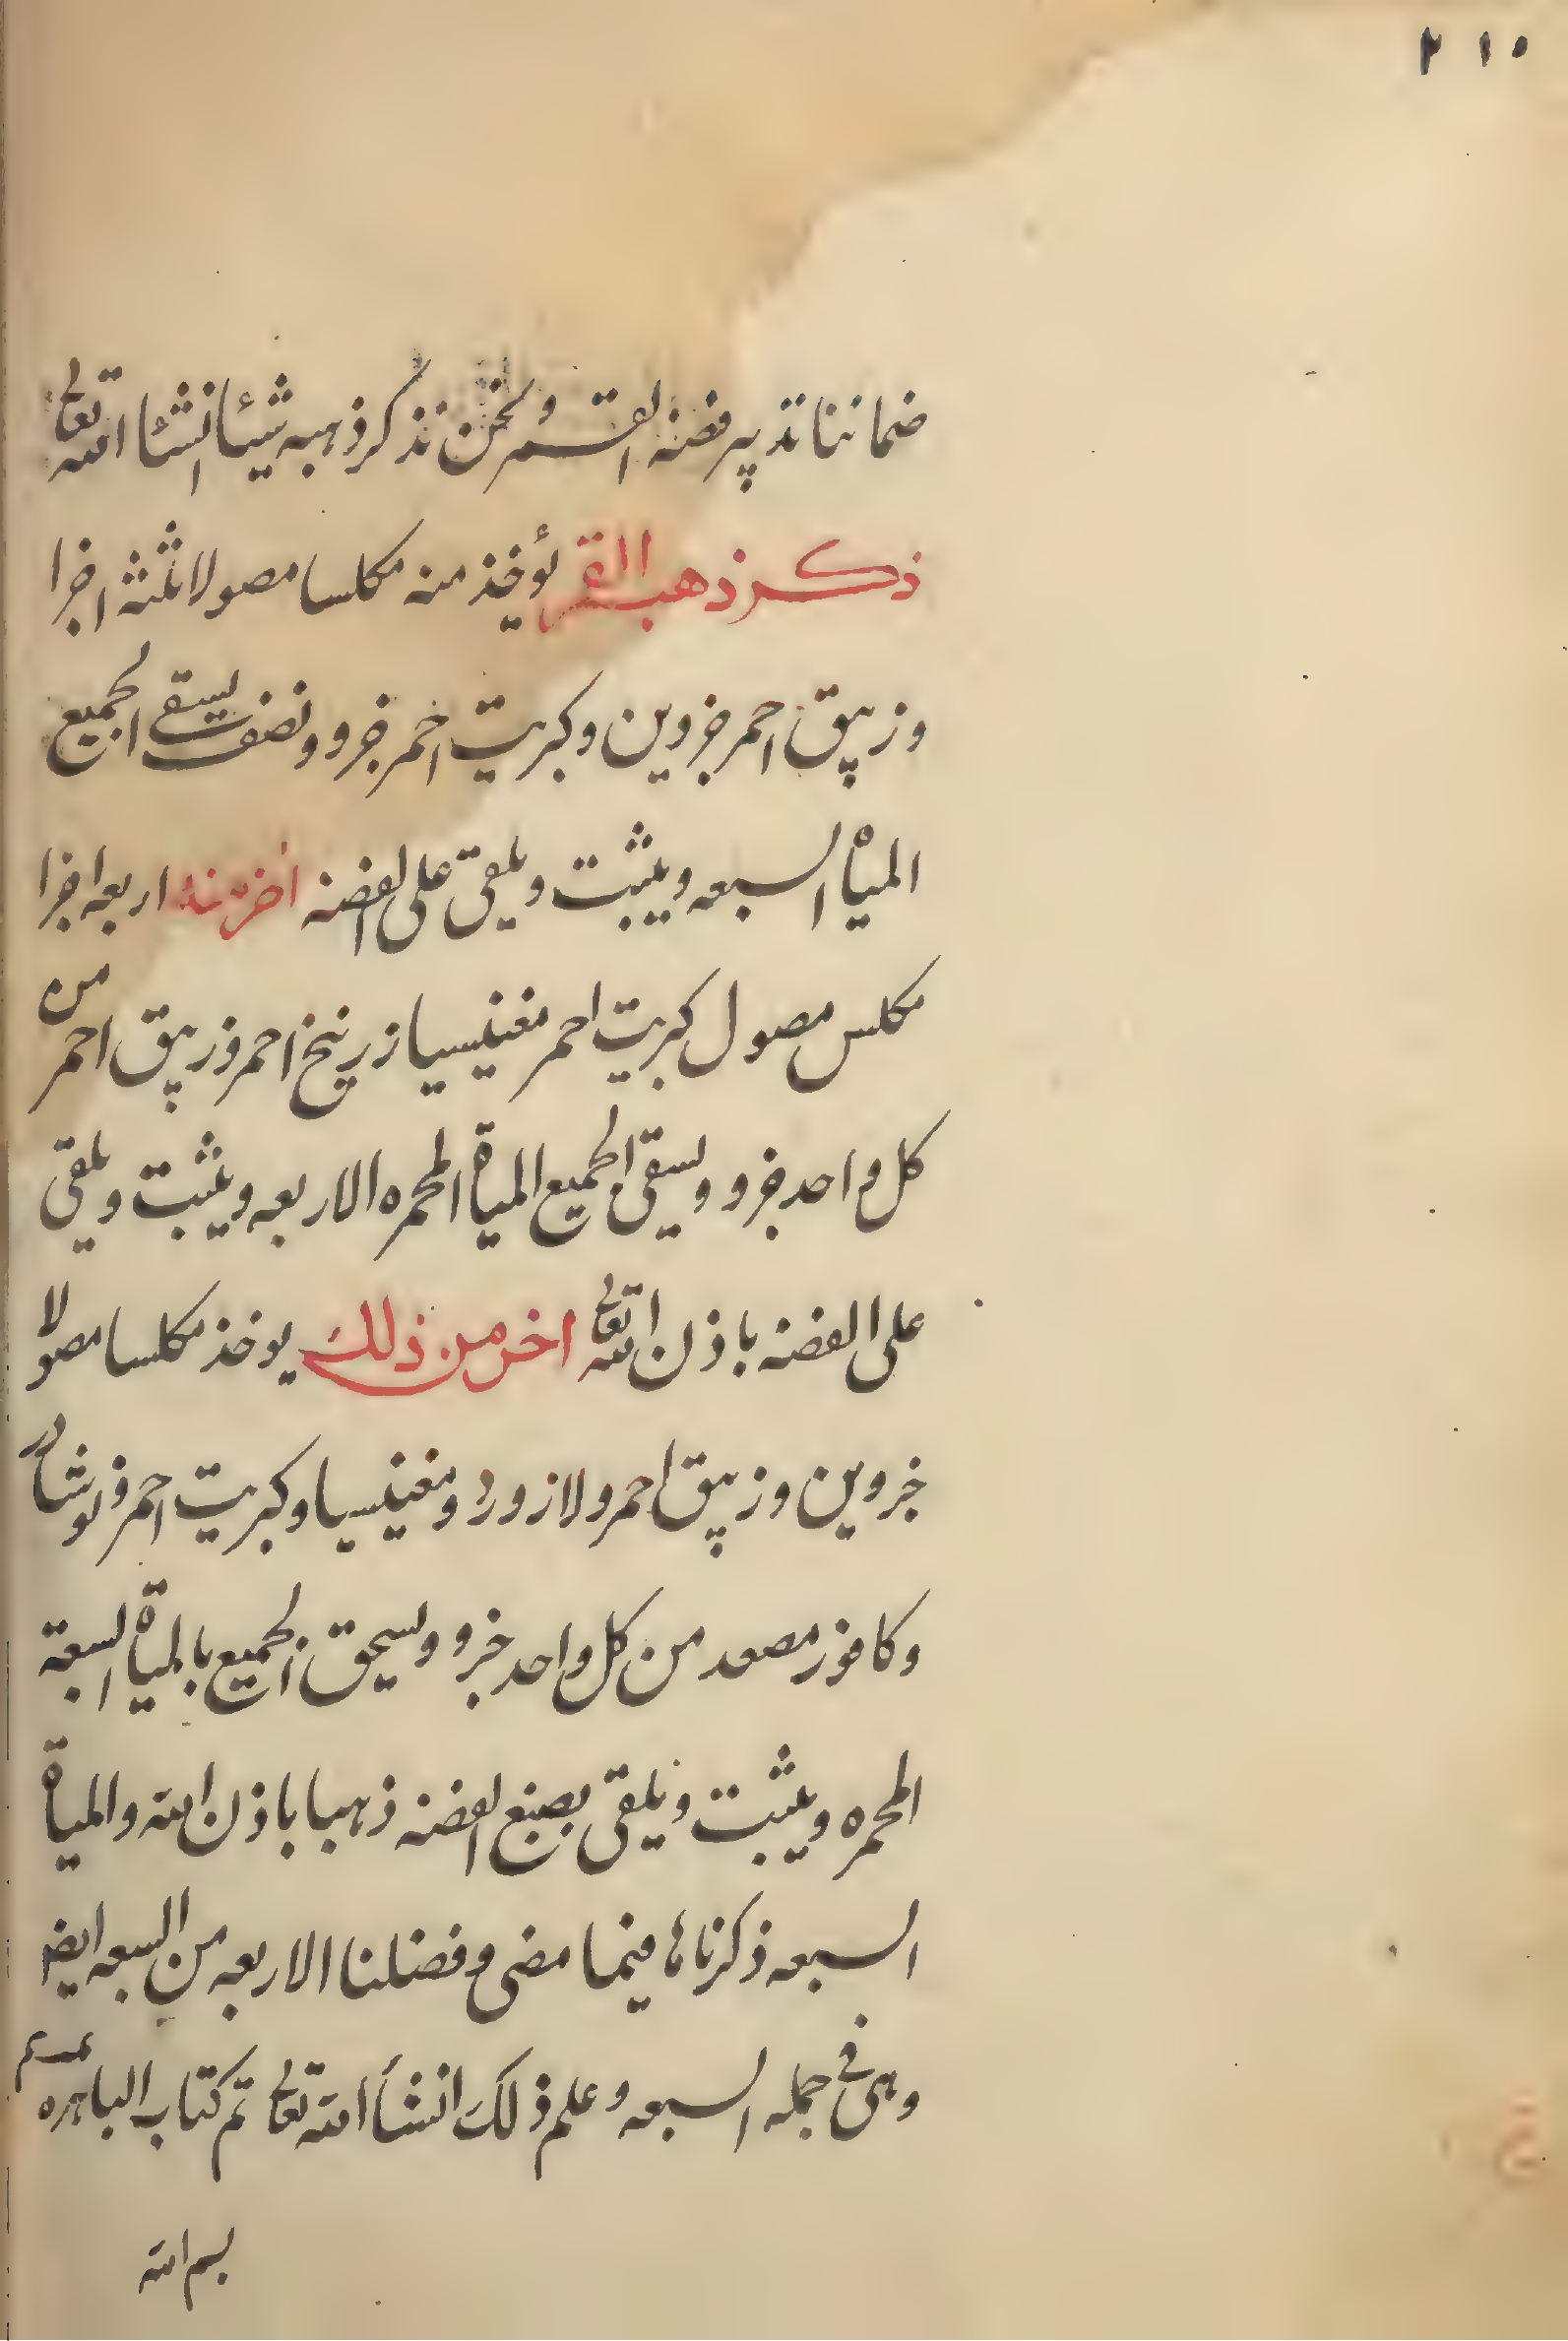 ٢١٠
ضماننا تدبير فضة القمر ونحن نذكر ذهبه شيئا انشئا الله تعالى
ذكر ذهب القمر يؤخذ منه مكلسا مصولا ثلثة اجزا
وزيبق احمر جزوين وكبريت احمر جزو ونصف يسقى الجميع
المياه السبعه ويثبت ويلقى على الفضة اخر منه اربعه اجزا
مكلس مصول كبريت احمر مغنيسيا زرينخ احمر وزيبق احمر من
كل واحد جزو ويسقى الجميع المياة المحمره الاربعه ويثبت ويلقى
على الفضة باذن الله تعالى اخر من ذلك يوخذ مكلسا مصولا
جزوين وزيبق احمر ولازورد ومغنيسيا وكبريت احمر ونوشادر
وكافور مصعد من كل واحد جزو ويسحق الجميع بالمياة السبعة
المحمره ويثبت ويلقى يصبغ الفضة ذهبا باذن الله والمياة
السبعه ذكرناها فيما مضى وفصلنا الاربعه من السبعه ايضا
وهى فى جمله السبعه وعلم ذلك انشأ الله تعالى تم كتاب الباهره
بسم الله